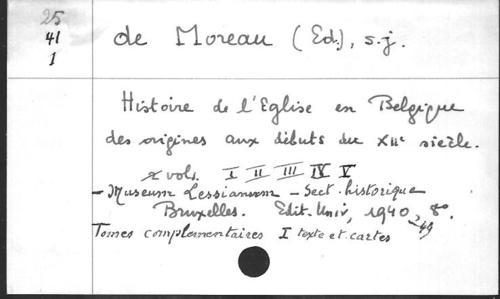 25
41
1
de Moreau (Ed.), s.j.
Histoire de l'Eglise en Belgique
des origines aux débuts du XIIe siècle.
2 vols. I II III IV V
- Museum Lessianum - Sect. historique
Bruxelles. Edit. Univ, 1940, 8º.
-49
Tomes complementaires I texte et cartes